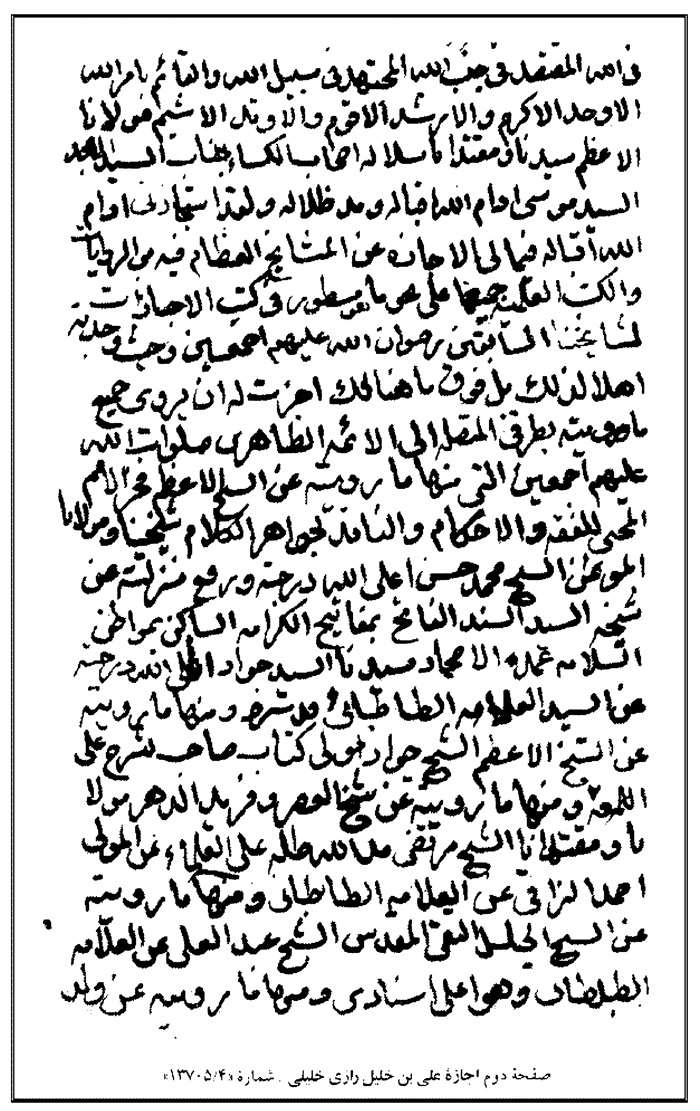 فی الله المعتقد فی جنب الله المجتهد فی سبیل الله والقائم بامر الله
الاوحد الاکرم والارشد الاقوم والاوتد الاشیم مولانا
الاعظم سیدنا و مقتدانا سلالة اصحاب الکساء جناب السید الامجد
السید موسی ادام الله اقباله ومد ظلاله ولقد استجازنی ادام
الله اقباله فیما لی الاجازة عن المشایخ العظام فیه من الروایات
والکتب العلمیة جمیعها علی نحو ما هو مسطور فی کتب الاجازات
لمشایخنا السابقین رضوان الله علیهم اجمعین وحیث وجدته
اهلا لذلک بل فوق ما هنالک اجزت له ان یروی جمیع
ما رویته بطرقی المتصلة الی الائمة الطاهرین صلوات الله
علیهم اجمعین التی منها ما رویته عن الشیخ الاعظم فخر الامم
المحیی للفقه والاحکام والناقد لجواهر الکلام شیخنا ومولانا
المؤتمن الشیخ محمد حسن اعلی الله درجته ورفع منزلته عن
شیخه السید السند الفاتح بمفاتیح الکرامة الساکن بمواطن
السلامة عمدة الامجاد سیدنا السید جواد اعلی الله درجته
عن السید العلامة الطباطبائی قدس سره ومنها ما رویته
عن الشیخ الاعظم الشیخ جواد مولی کتاب صاحب شرح علی
اللمعة ومنها ما رویته عن شیخ العصر وفرید الدهر مولا
نا ومقتدانا الشیخ مرتضی مد الله ظله علی العلماء عن المولی
احمد النراقی عن العلامة الطباطبائی ومنها ما رویته
عن الشیخ الجلیل التقی المقدس الشیخ عبد العلی عن العلامة
الطباطبائی وهو اعلی اسنادی ومنها ما رویته عن ولد
صفحهٔ دوم اجازهٔ علی بن خلیل رازی خلیلی . شمارهٔ «۱۳۷۰۵/۴»